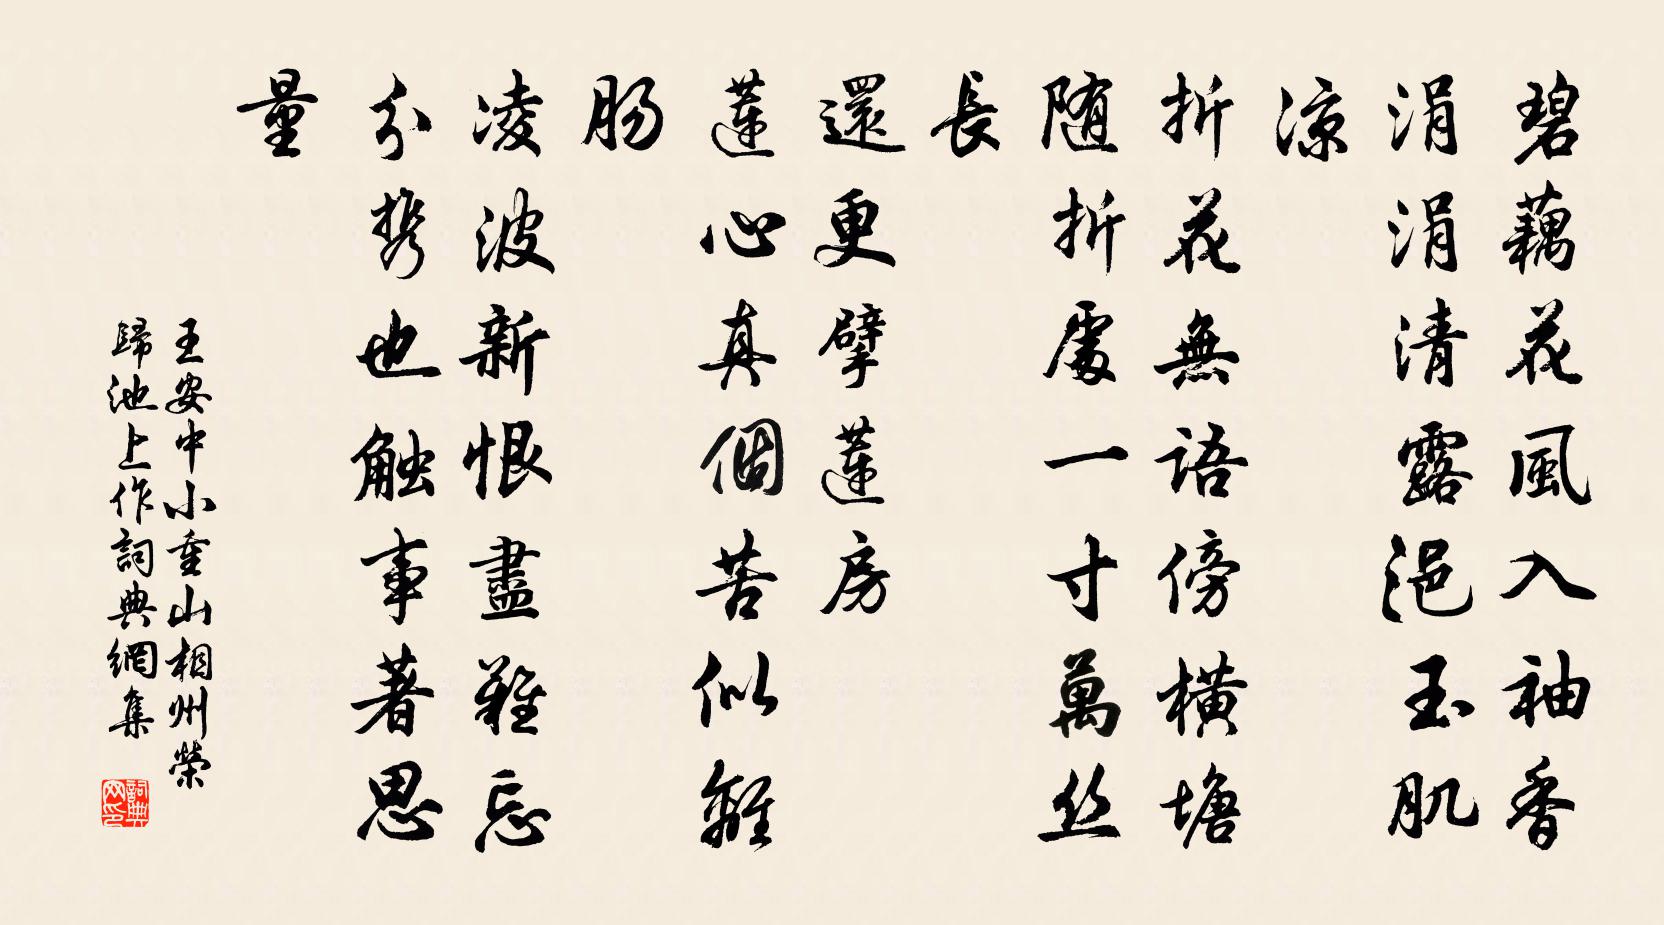 碧藕花風入袖香
涓涓清露浥玉肌
涼
折花無語傍橫塘
随折處一寸萬丝
長
還更擘蓮房
蓮心真個苦似離
肠
凌波新恨盡難忘
分携也触事著思
量
王安中小重山相州榮
歸池上作詞典網集
詞典
网印